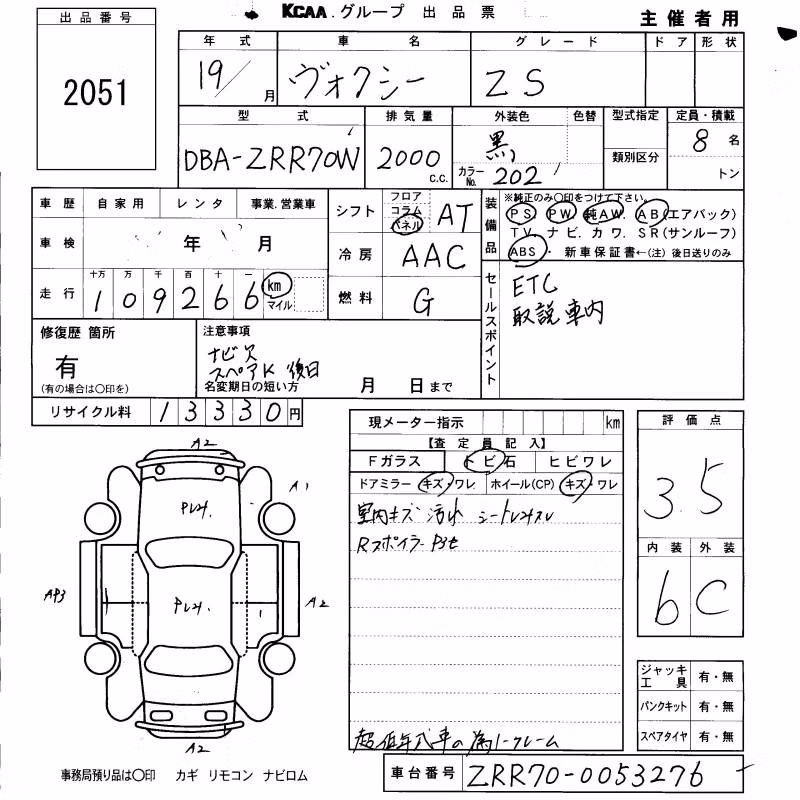 KCAA.グループ 出品票
主催者用
出品番号
2051
年式 車名 グレード ドア 形状
19/ 月 ヴォクシー ZS
型式 排気量 外装色 色替 型式指定 定員・積載
DBA-ZRR70W 2000 c.c. 黒 カラーNo. 202 類別区分 8名
トン
車歴 自家用 レンタ 事業.営業車
車検 年 月
走行 十万 万 千 百 十 一
109266 km マイル
シフト フロア コラム パネル AT
冷房 AAC
燃料 G
装備品 ※純正のみ〇印をつけて下さい。
PS PW 純AW. AB(エアバック)
TV. ナビ. カワ. SR(サンルーフ)
ABS・ 新車保証書←(注)後日送りのみ
セールスポイント
ETC
取説車内
修復歴 箇所
有
(有の場合は〇印を)
注意事項
ナビ欠
スペアK 後日
名変期日の短い方 月 日まで
リサイクル料 13330円
現メーター指示 km
【査定員記入】
Fガラス トビ石 ヒビワレ
ドアミラー キズ・ワレ ホイール(CP) キズ・ワレ
室内キズ 汚れ シート
Rスポイラー
の為1クレーム
評価点
3.5
内装 外装
6 C
ジャッキ工具 有・無
パンクキット 有・無
スペアタイヤ 有・無
A2
A1
AP3
A2
A2
事務局預り品は〇印 カギ リモコン ナビロム
車台番号 ZRR70-0053276